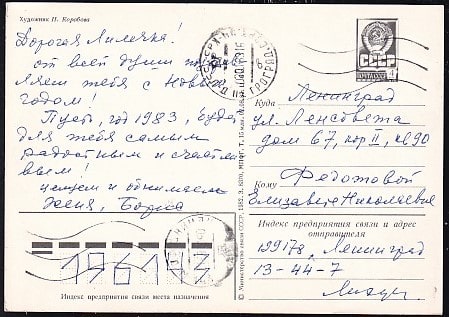 Художник Н. Коробова
Дорогая Лилечка!
от всей души поздрав
ляем тебя с Новым
годом!
Пусть год 1983, будет
для тебя самым
радостным и счастли
вым!
целуем и обнимаем
Женя, Борис
СССР
Куда Ленинград
ул. Ленсовета
дом 67, кор II, кв 90
Кому Федотовой
Елизавете Николаевне
Индекс предприятия связи и адрес
отправителя
199178, Ленинград
13-44-7
196143
Индекс предприятия связи места назначения
© Министерство связи СССР, 1982.